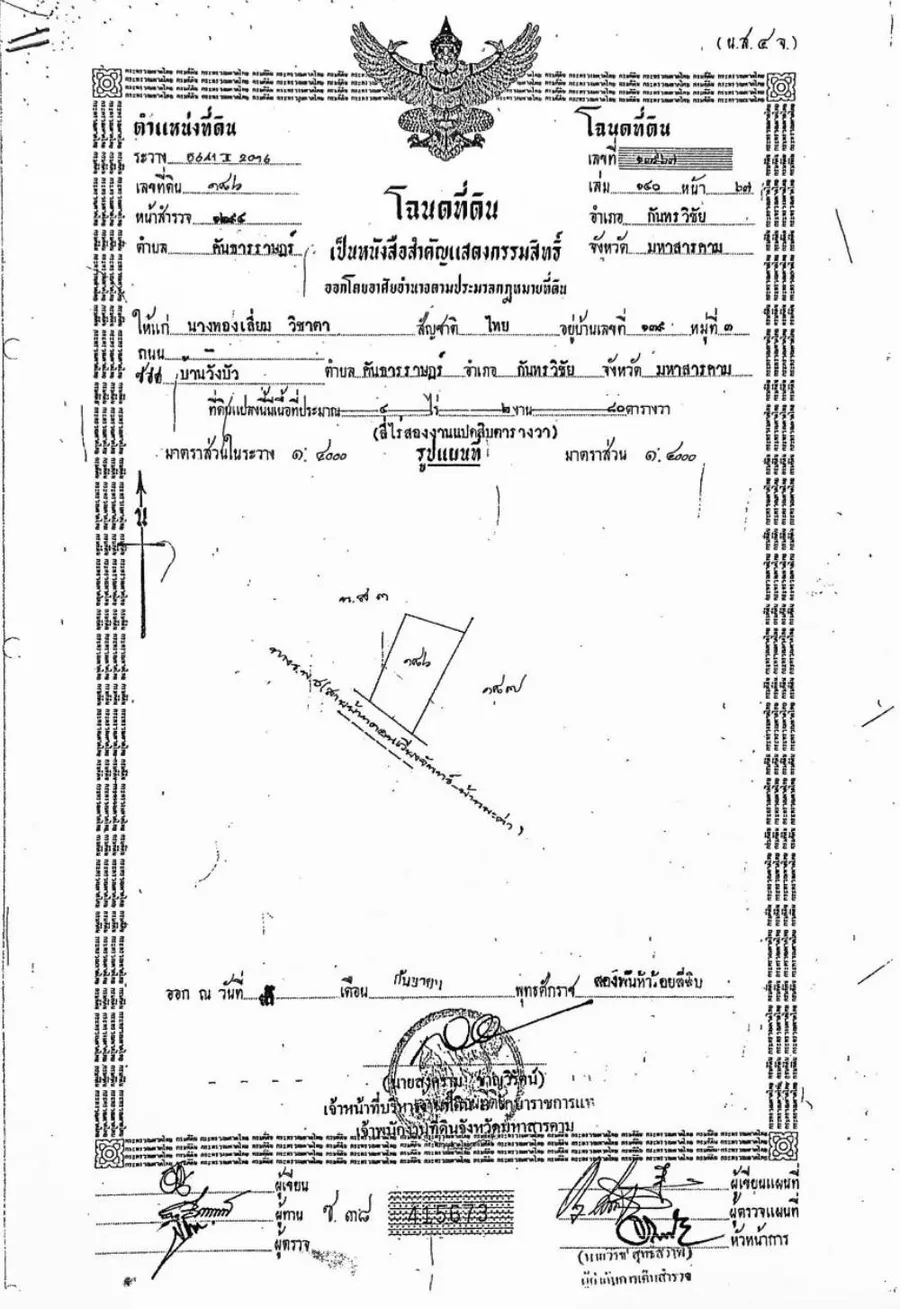 (น.ส.๔ จ.)
ตำแหน่งที่ดิน
ระวาง
เลขที่ดิน ๓๙๖
หน้าสำรวจ ๑๒๙๔
ตำบล คันธารราษฎร์
โฉนดที่ดิน
เลขที่
เล่ม ๑๔๐ หน้า ๖๗
อำเภอ กันทรวิชัย
จังหวัด มหาสารคาม
โฉนดที่ดิน
เป็นหนังสือสำคัญแสดงกรรมสิทธิ์
ออกโดยอาศัยอำนาจตามประมวลกฎหมายที่ดิน
ให้แก่ นางทองเลี่ยม วิชาตา สัญชาติ ไทย อยู่บ้านเลขที่ ๑๓๙ หมู่ที่ ๓
ถนน -
บ้านวังบัว ตำบล คันธารราษฎร์ อำเภอ กันทรวิชัย จังหวัด มหาสารคาม
ที่ดินแปลงนี้มีเนื้อที่ประมาณ ๔ ไร่ ๒ งาน ๘๐ ตารางวา
(สี่ไร่สองงานแปดสิบตารางวา)
มาตราส่วนในระวาง ๑: ๔๐๐๐ รูปแผนที่ มาตราส่วน ๑: ๔๐๐๐
น
ท.ส ๓
๓๙๖
๓๙๗
ออก ณ วันที่ เดือน กันยายน พุทธศักราช สองพันห้าร้อยสี่สิบ
(นายสงคราม ชาญวิรัตน์)
เจ้าหน้าที่บริหารงานที่ดิน รักษาราชการแทน
เจ้าพนักงานที่ดินจังหวัดมหาสารคาม
ผู้เขียน
ผู้ทาน
ผู้ตรวจ
ช. ๓๘
415673
ผู้เขียนแผนที่
ผู้ตรวจแผนที่
หัวหน้าการ
ผู้กำกับการเดินสำรวจ